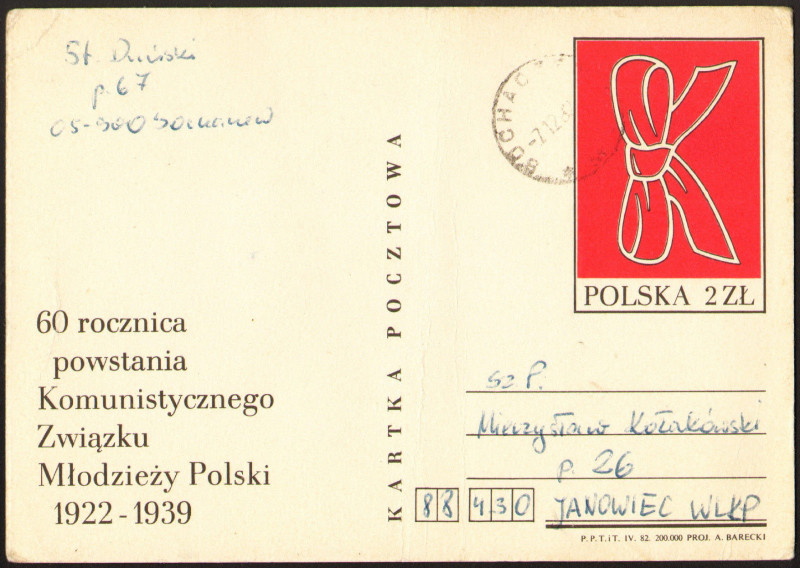 St. Duński
p. 67
05-500 Sochaczew
60 rocznica
powstania
Komunistycznego
Związku
Młodzieży Polski
1922 - 1939
KARTKA POCZTOWA
SOCHAC
-7.12.8
POLSKA 2 ZŁ
Sz P.
Mieczysław Kołakówski
p. 26
88 430 JANOWIEC WLKP
P.P.T.iT. IV. 82. 200.000 PROJ. A. BARECKI